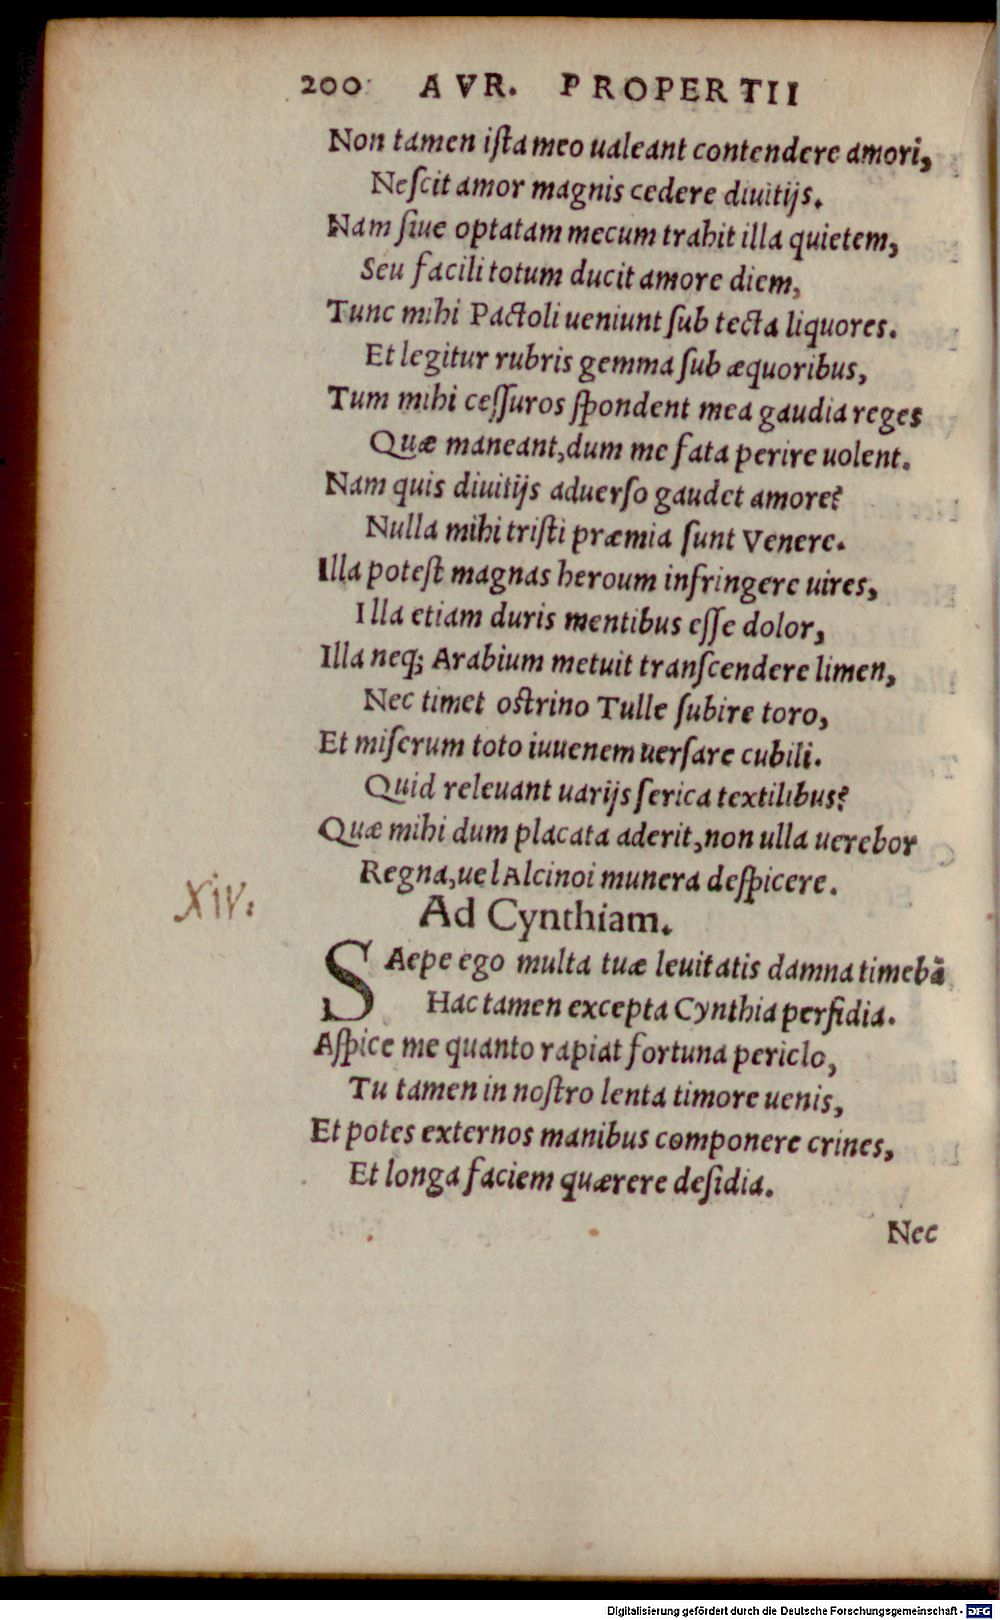 200 AVR. PROPERTII
Non tamen iſta meo ualeant contendere amori,
Neſcit amor magnis cedere diuitijs.
Nam ſiue optatam mecum trahit illa quietem,
Seu facili totum ducit amore diem,
Tunc mihi Pactoli ueniunt ſub tecta liquores.
Et legitur rubris gemma ſub æquoribus,
Tum mihi ceſſuros ſpondent mea gaudia reges
Quæ maneant, dum me fata perire uolent.
Nam quis diuitijs aduerſo gaudet amore?
Nulla mihi triſti præmia ſunt Venere.
Illa poteſt magnas heroum infringere uires,
Illa etiam duris mentibus eſſe dolor,
Illa neq; Arabium metuit tranſcendere limen,
Nec timet oſtrino Tulle ſubire toro,
Et miſerum toto iuuenem uerſare cubili.
Quid releuant uarijs ſerica textilibus?
Quæ mihi dum placata aderit, non ulla uerebor
Regna, uel Alcinoi munera deſpicere.
XIV.
Ad Cynthiam.
SAepe ego multa tuæ leuitatis damna timebā
Hac tamen excepta Cynthia perfidia.
Aſpice me quanto rapiat fortuna periclo,
Tu tamen in noſtro lenta timore uenis,
Et potes externos manibus componere crines,
Et longa faciem quærere deſidia.
Nec
Digitalisierung gefördert durch die Deutsche Forschungsgemeinschaft - DFG